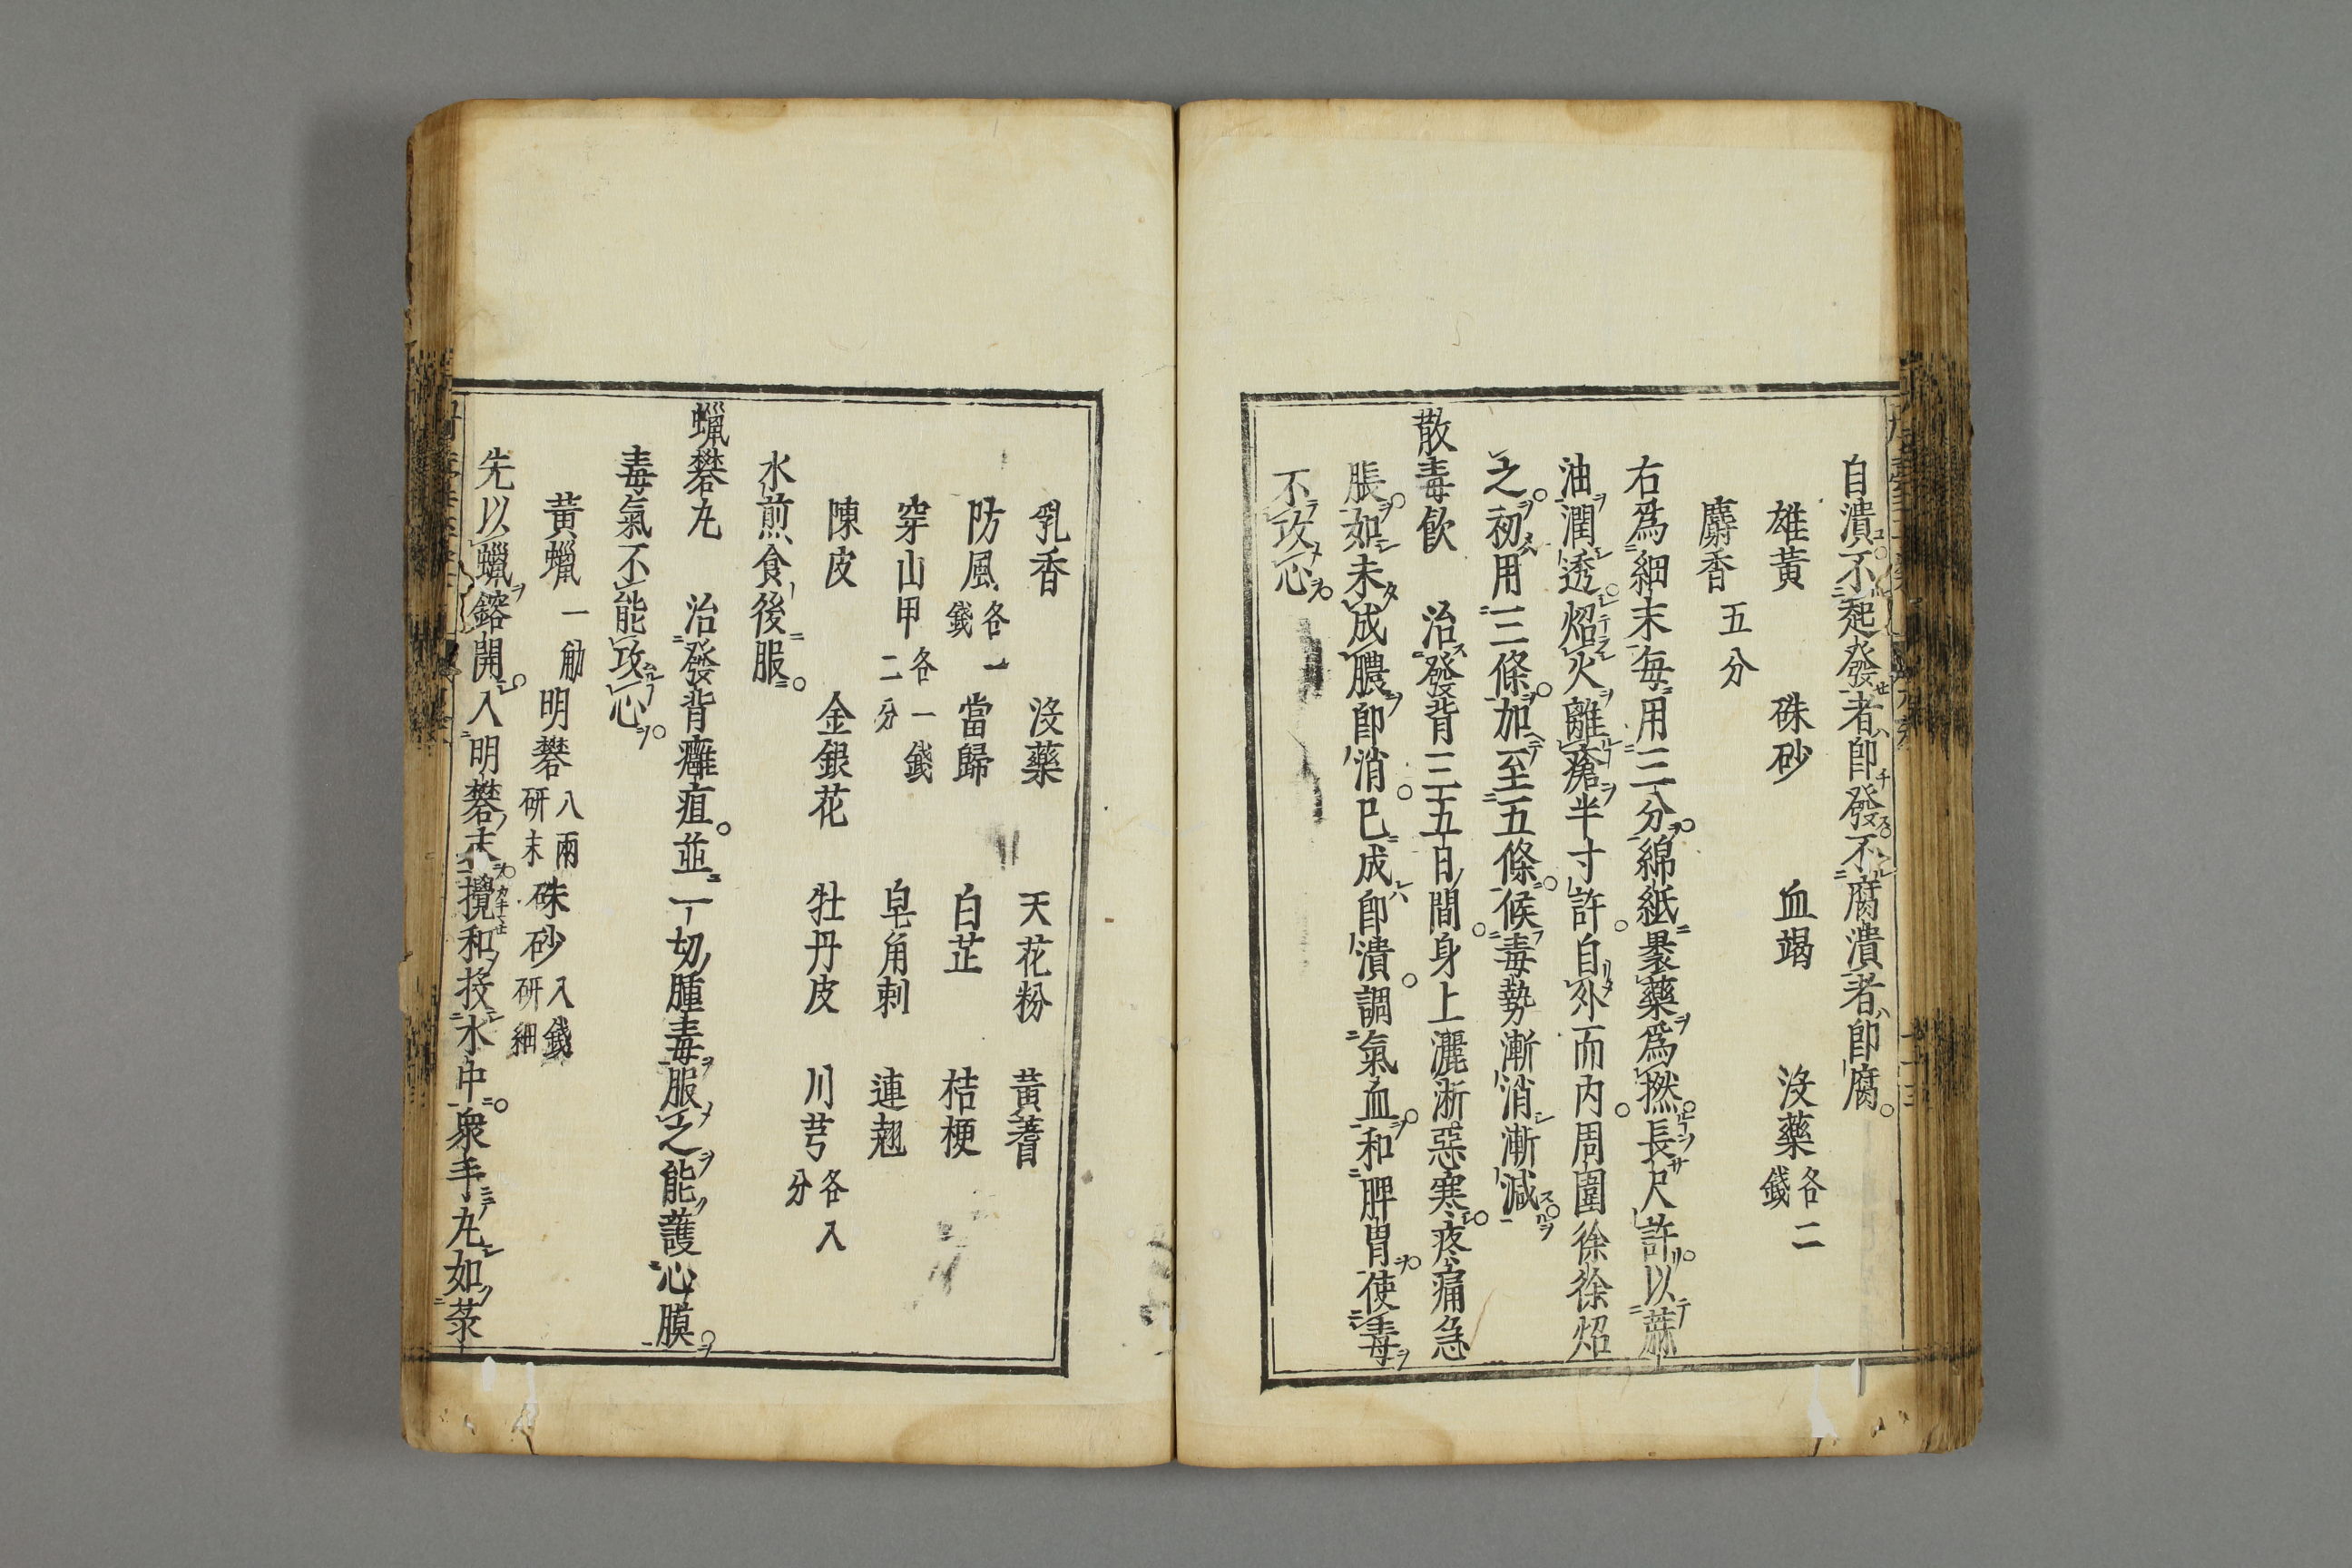 自潰不起發者即發不腐潰者即腐
雄黃 硃砂 血竭 沒藥各二錢
麝香五分
右爲細末每用三分綿紙褁藥爲撚長尺許以蔴
油潤透焰火離瘡半寸許自外而内周圍徐徐焰
之初用三條加至五條候毒勢漸消漸減
散毒飲 治發背三五日間身上灑淅惡寒疼痛急
脹如未成膿即消已成即潰調氣血和脾胃使毒
不攻心
乳香 沒藥 天花粉 黃蓍
防風各一錢 當歸 白芷 桔梗
穿山甲各一錢二分 皂角刺 連翹
陳皮 金銀花 牡丹皮 川芎各八分
水煎食後服
蠟礬丸 治發背癰疽並一切腫毒服之能護心膜
毒氣不能攻心
黃蠟一觔 明礬八兩研末 硃砂八錢研細
先以蠟鎔開入明礬末攪和投水中衆手丸如菉